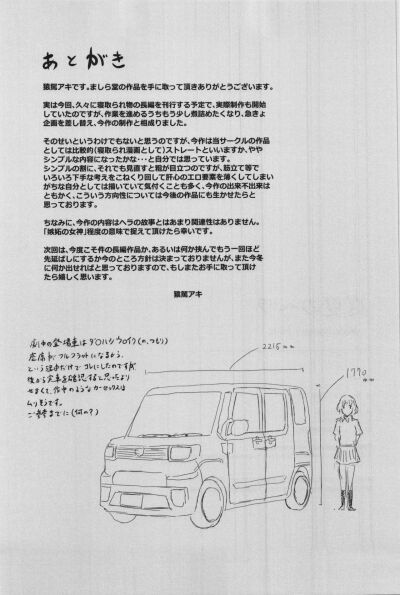 あとがき
猿駕アキです。ましら堂の作品を手に取って頂きありがとうございます。
実は今回、久々に寝取られ物の長編を刊行する予定で、実際制作も開始
していたのですが、作業を進めるうちもう少し煮詰めたくなり、急きょ
企画を差し替え、今作の制作と相成りました。
そのせいというわけでもないと思うのですが、今作は当サークルの作品
としては比較的(寝取られ漫画として)ストレートといいますか、やや
シンプルな内容になったかな・・と自分では思っています。
シンプルの割に、それでも見直すと粗が目立つのですが、筋立て等で
いろいろ下手な考えをこねくり回して肝心のエロ要素を薄くしてしまい
がちな自分としては描いていて気付くことも多く、今作の出来不出来は
ともかく、こういう方向性については今後の作品にも生かせたらと
思っております。
ちなみに、今作の内容はヘラの故事とはあまり関連性はありません。
「嫉妬の女神」程度の意味で捉えて頂けたら幸いです。
次回は、今度こそ件の長編作品か、あるいは何か挟んでもう一回ほど
先延ばしにするか今のところ方針は決まっておりませんが、また今冬
に何か出せればと思っておりますので、もしまたお手に取って頂け
たら嬉しく思います。
猿駕アキ
劇中の登場車はダ〇ハツウ〇イク(の、つもり)
座席がフルフラットになるから、
という理由だけでコレにしたのですが
後から実車を確認すると思ったより
せまくて、作中のようなカーセックスは
ムリそうです。
ご参考までに(何の?)
2215mm
1770
mm